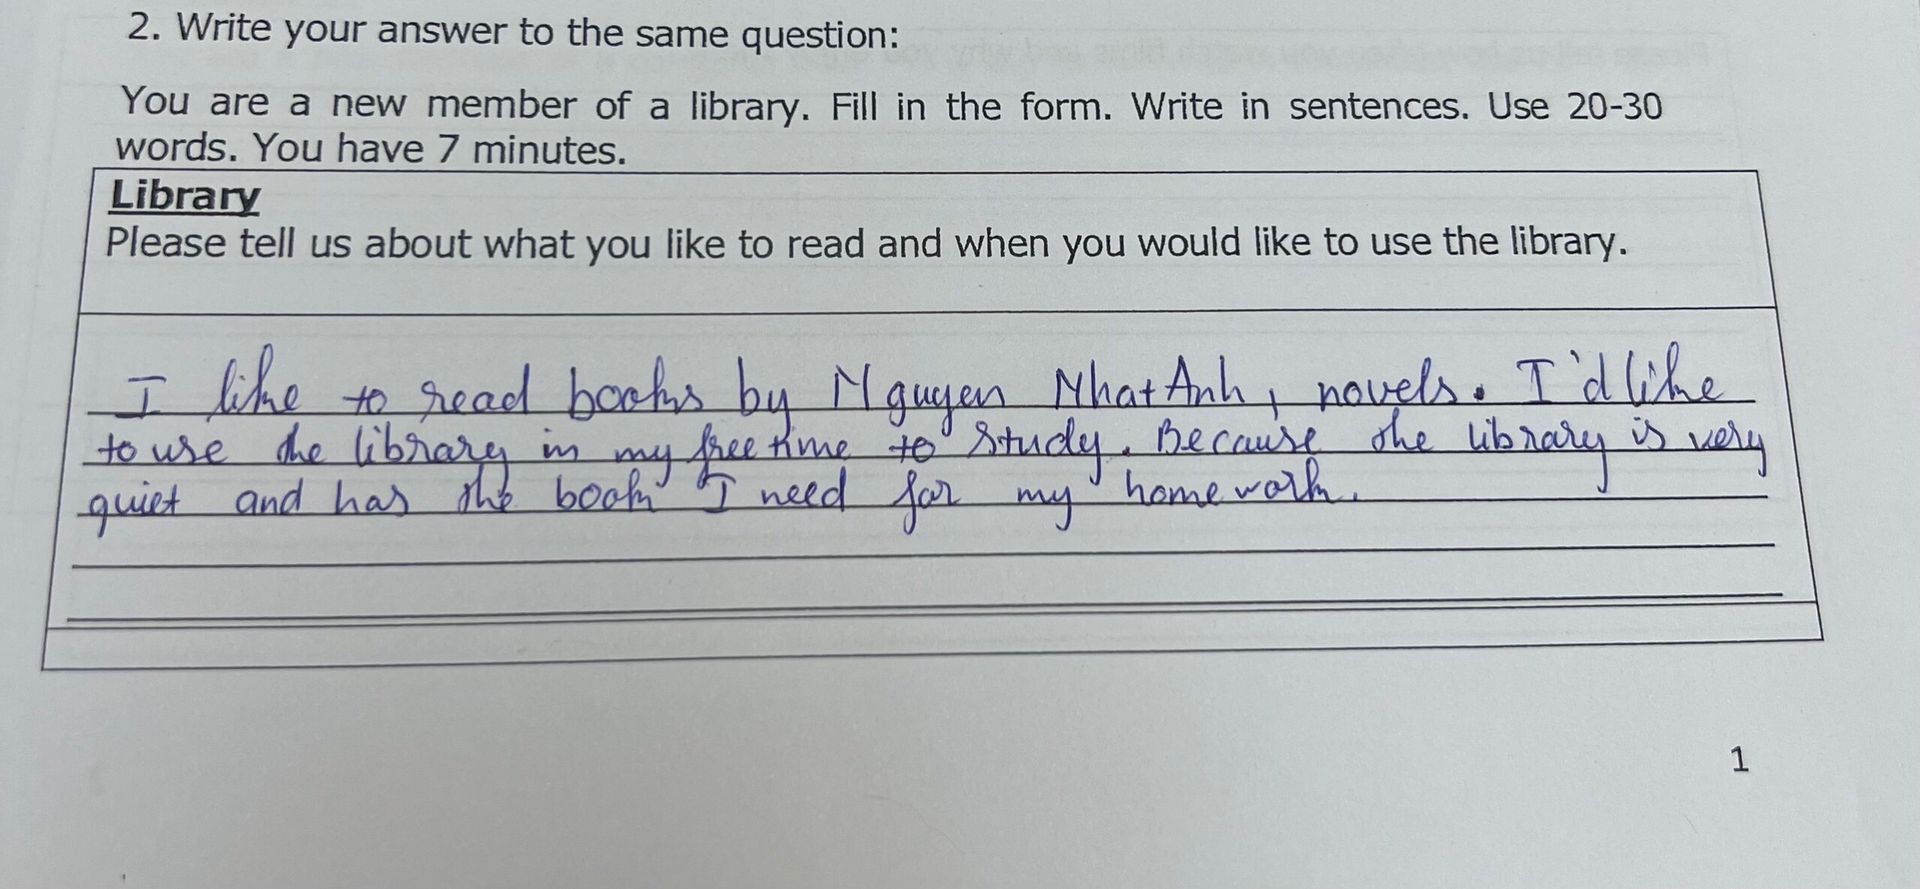 2. Write your answer to the same question:
You are a new member of a library. Fill in the form. Write in sentences. Use 20-30
words. You have 7 minutes.
Library
Please tell us about what you like to read and when you would like to use the library.
I like to read books by Nguyen Nhat Anh, novels. I'd like
to use the library in my free time to study. Because the library is very
quiet and has the book I need for my homework.
1